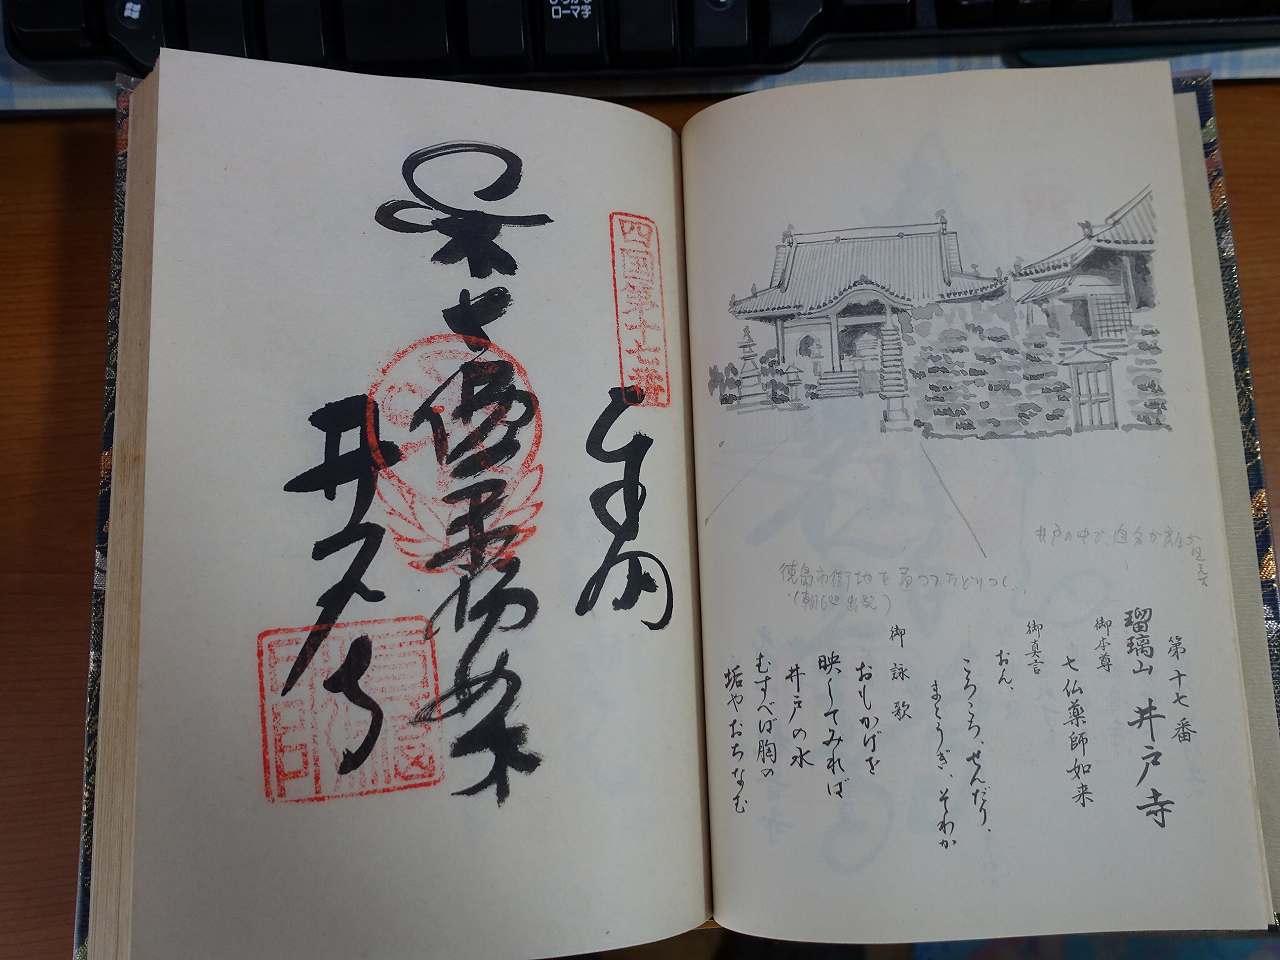 ローマ字
四国第十七番
奉納
七佛薬師如来
井戸寺
井戸の中び
徳島市街地を
第十七番
瑠璃山 井戸寺
御本尊
七仏薬師如来
御真言
おん、
ころころ、せんだり、
まとうぎ、そわか
御詠歌
おもかげを
映してみれば
井戸の水
むすべば胸の
垢やおちなむ